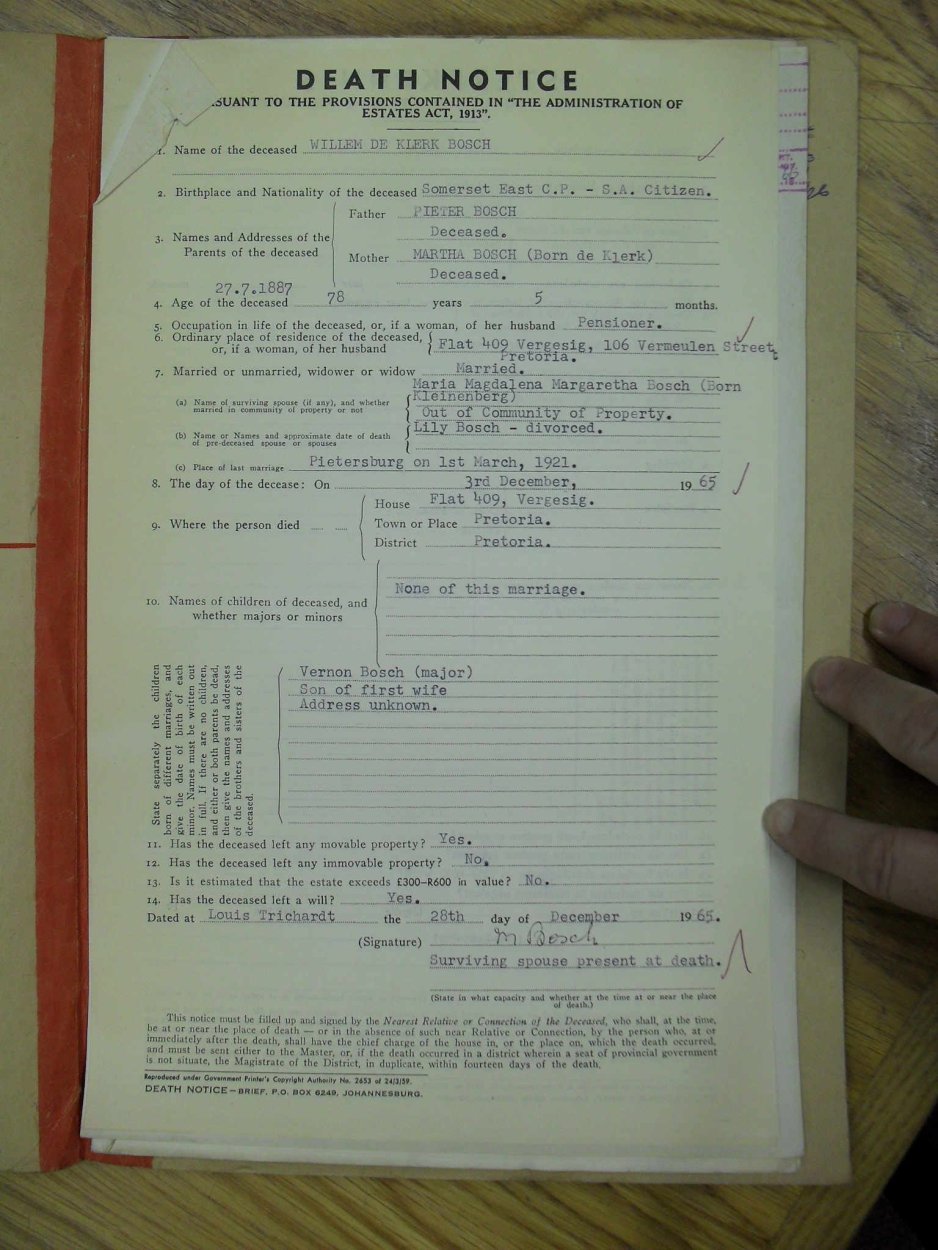 DEATH NOTICE
SUANT TO THE PROVISIONS CONTAINED IN “THE ADMINISTRATION OF
ESTATES ACT, 1913”.
1. Name of the deceased WILLEM DE KLERK BOSCH
2. Birthplace and Nationality of the deceased Somerset East C.P. - S.A. Citizen.
3. Names and Addresses of the Parents of the deceased
Father PIETER BOSCH
Deceased.
Mother MARTHA BOSCH (Born de Klerk)
Deceased.
27.7.1887
4. Age of the deceased 78 years 5 months.
5. Occupation in life of the deceased, or, if a woman, of her husband Pensioner.
6. Ordinary place of residence of the deceased, or, if a woman, of her husband
Flat 409 Vergesig, 106 Vermeulen Street,
Pretoria.
7. Married or unmarried, widower or widow Married.
(a) Name of surviving spouse (if any), and whether married in community of property or not
Maria Magdalena Margaretha Bosch (Born
Kleinenberg)
Out of Community of Property.
(b) Name or Names and approximate date of death of pre-deceased spouse or spouses
Lily Bosch - divorced.
(c) Place of last marriage Pietersburg on 1st March, 1921.
8. The day of the decease: On 3rd December, 19 65
9. Where the person died
House Flat 409, Vergesig.
Town or Place Pretoria.
District Pretoria.
10. Names of children of deceased, and whether majors or minors
None of this marriage.
State separately the children
born of different marriages, and
give the date of birth of each
minor. Names must be written out
in full. If there are no children,
and either or both parents be dead,
then give the names and addresses
of the brothers and sisters of the
deceased.
Vernon Bosch (major)
Son of first wife
Address unknown.
11. Has the deceased left any movable property? Yes.
12. Has the deceased left any immovable property? No.
13. Is it estimated that the estate exceeds £300–R600 in value? No.
14. Has the deceased left a will? Yes.
Dated at Louis Trichardt the 28th day of December 19 65.
(Signature) M Bosch
Surviving spouse present at death.
(State in what capacity and whether at the time at or near the place
of death.)
This notice must be filled up and signed by the Nearest Relative or Connection of the Deceased, who shall, at the time,
be at or near the place of death — or in the absence of such near Relative or Connection, by the person who, at or
immediately after the death, shall have the chief charge of the house in, or the place on, which the death occurred,
and must be sent either to the Master, or, if the death occurred in a district wherein a seat of provincial government
is not situate, the Magistrate of the District, in duplicate, within fourteen days of the death.
Reproduced under Government Printer's Copyright Authority No. 2653 of 24/3/59.
DEATH NOTICE—BRIEF, P.O. BOX 6249, JOHANNESBURG.